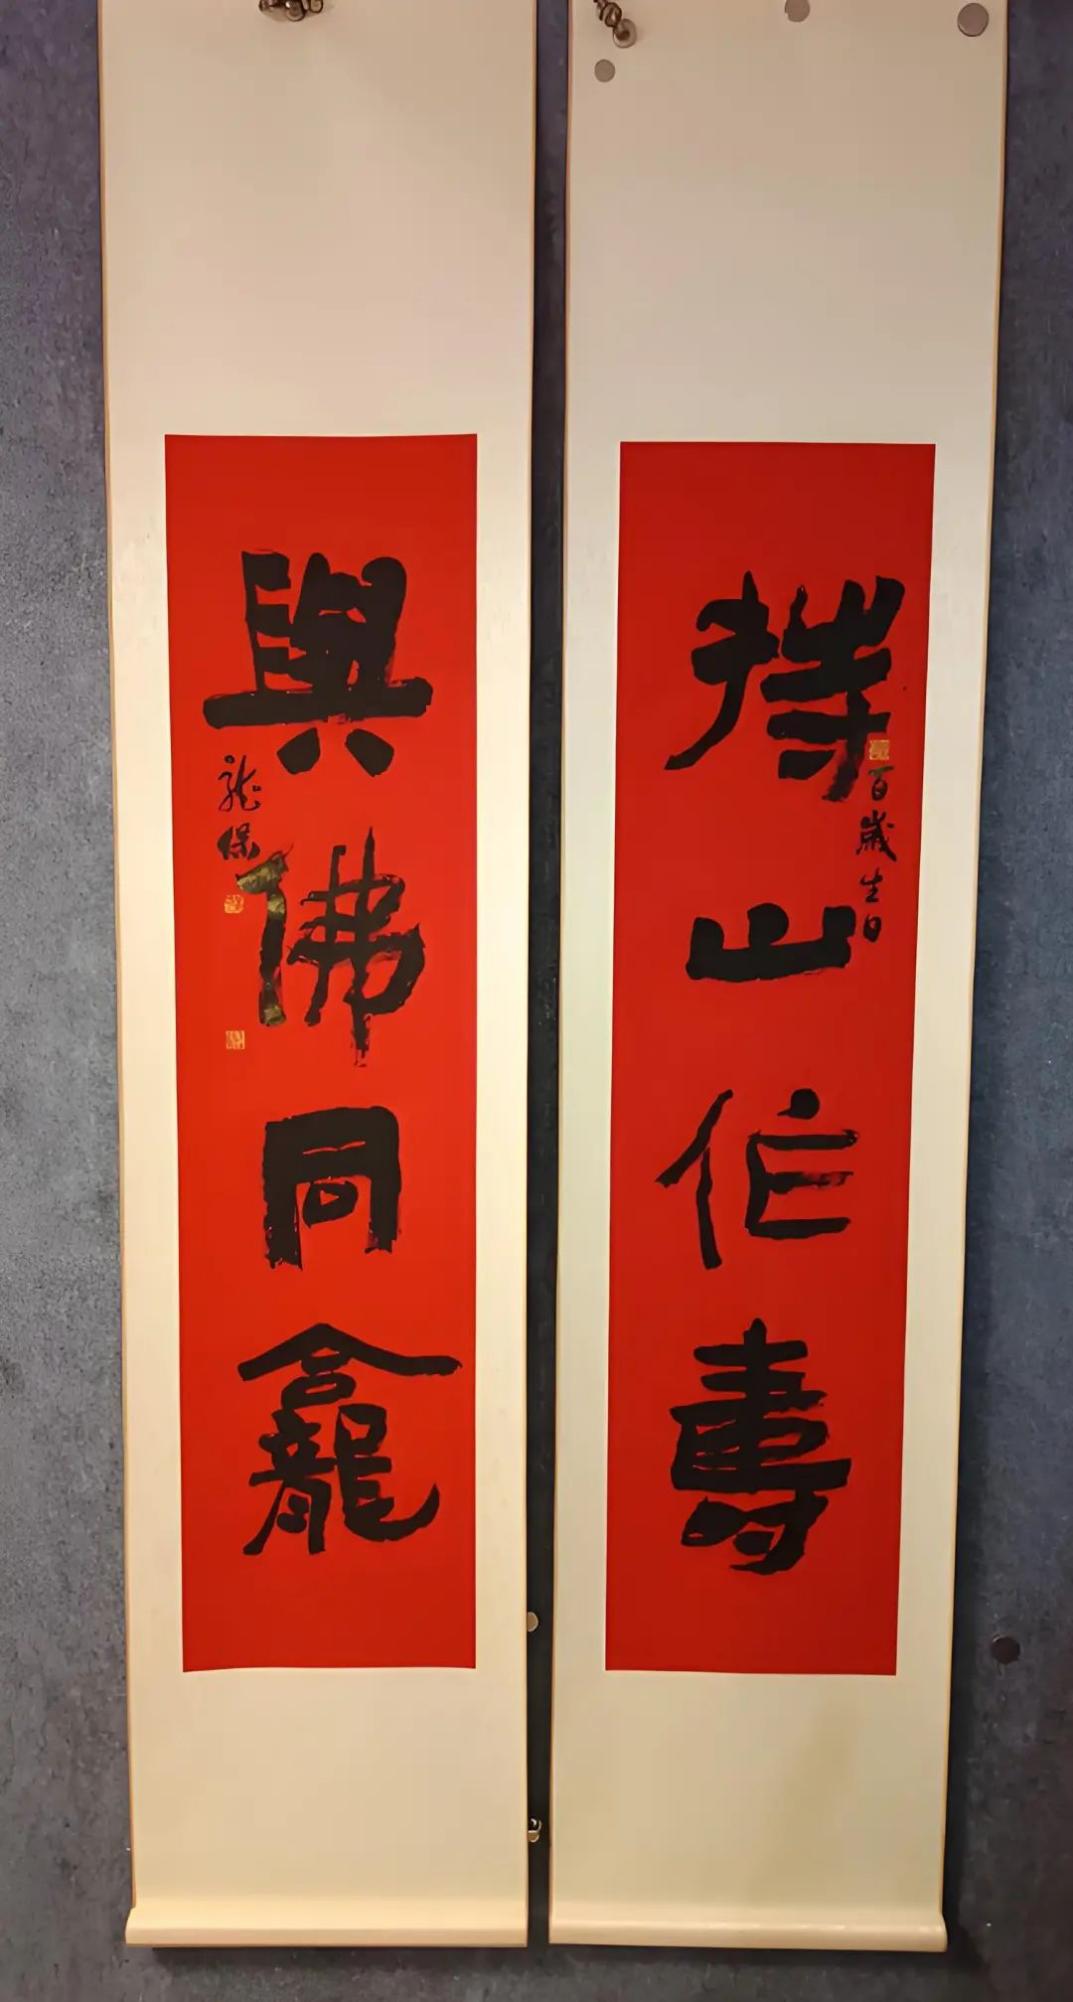 百歲生日
持山作壽
與佛同龕
龍保